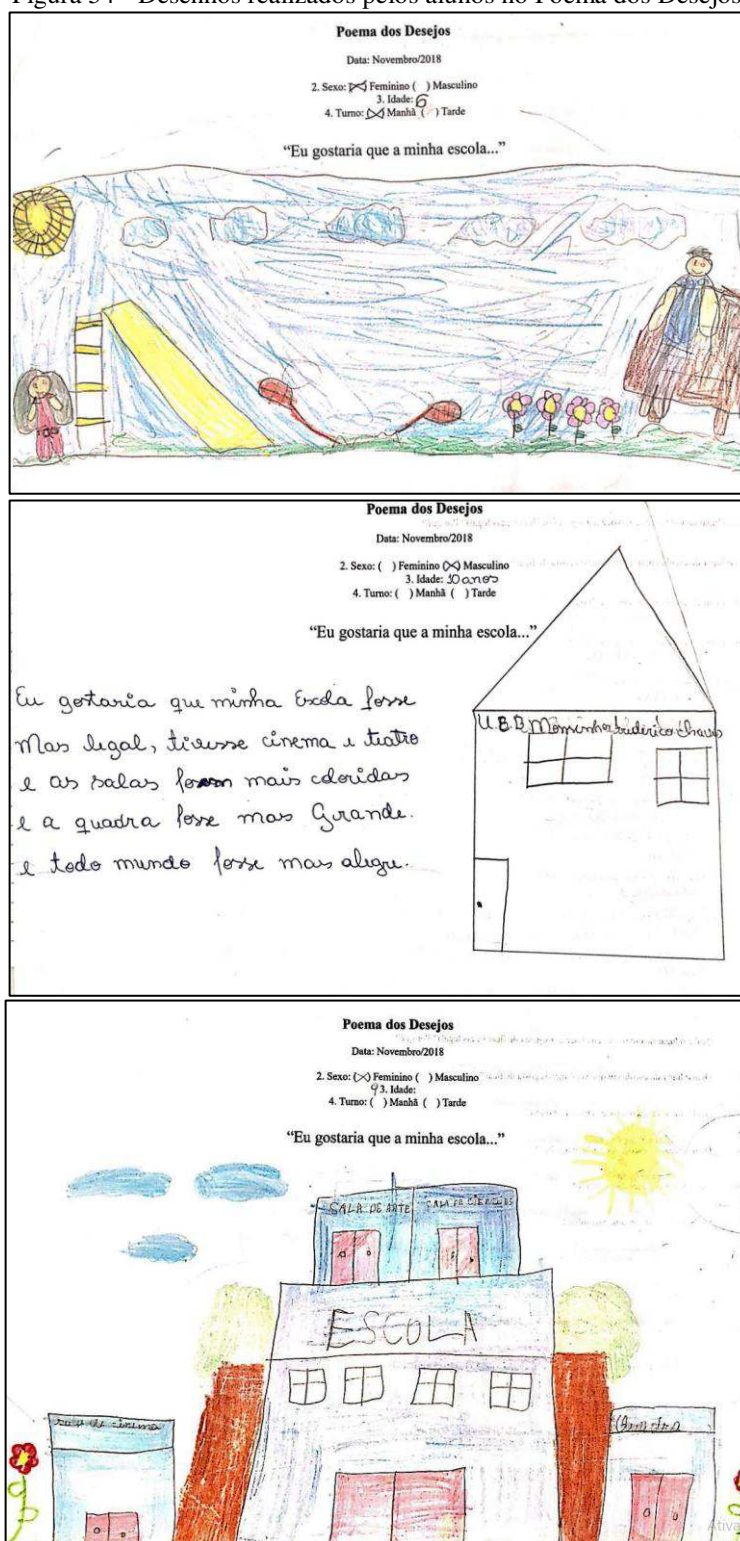 Figura 34 - Desenhos realizados pelos alunos no Poema dos Desejos
Poema dos Desejos
Data: Novembro/2018
2. Sexo: (X) Feminino ( ) Masculino
3. Idade: 6
4. Turno: (X) Manhã ( ) Tarde
“Eu gostaria que a minha escola...”
Poema dos Desejos
Data: Novembro/2018
2. Sexo: ( ) Feminino (X) Masculino
3. Idade: 10 anos
4. Turno: ( ) Manhã ( ) Tarde
“Eu gostaria que a minha escola...”
Eu gostaria que minha Escola fosse
Mas legal, tivesse cinema e teatro
e as salas fossem mais coloridas
e a quadra fosse mas Grande.
e todo mundo fosse mas alegre.
U.E.B
Poema dos Desejos
Data: Novembro/2018
2. Sexo: (X) Feminino ( ) Masculino
9 3. Idade:
4. Turno: ( ) Manhã ( ) Tarde
“Eu gostaria que a minha escola...”
SALA DE ARTE SALA DE CIENCIAS
ESCOLA
sala de cinema
Ativa